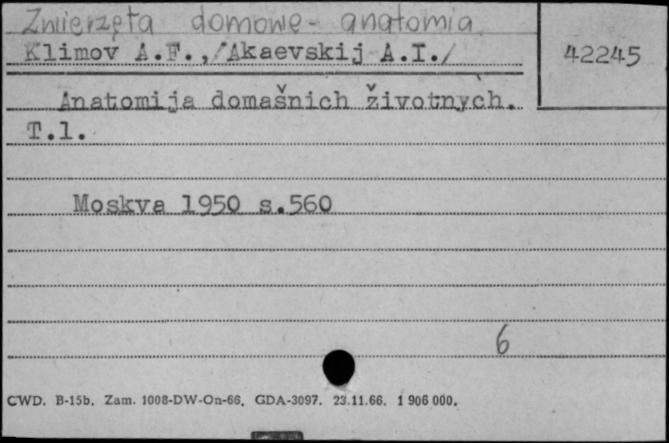 Zwierzęta domowe - anatomia
Klimov A.F.,/Akaevskij A.I./
42245
Anatomija domašnich životnych.
T.1.
Moskva 1950 s.560
6
CWD. B-15b. Zam. 1008-DW-On-66. GDA-3097. 23.11.66. 1 906 000.